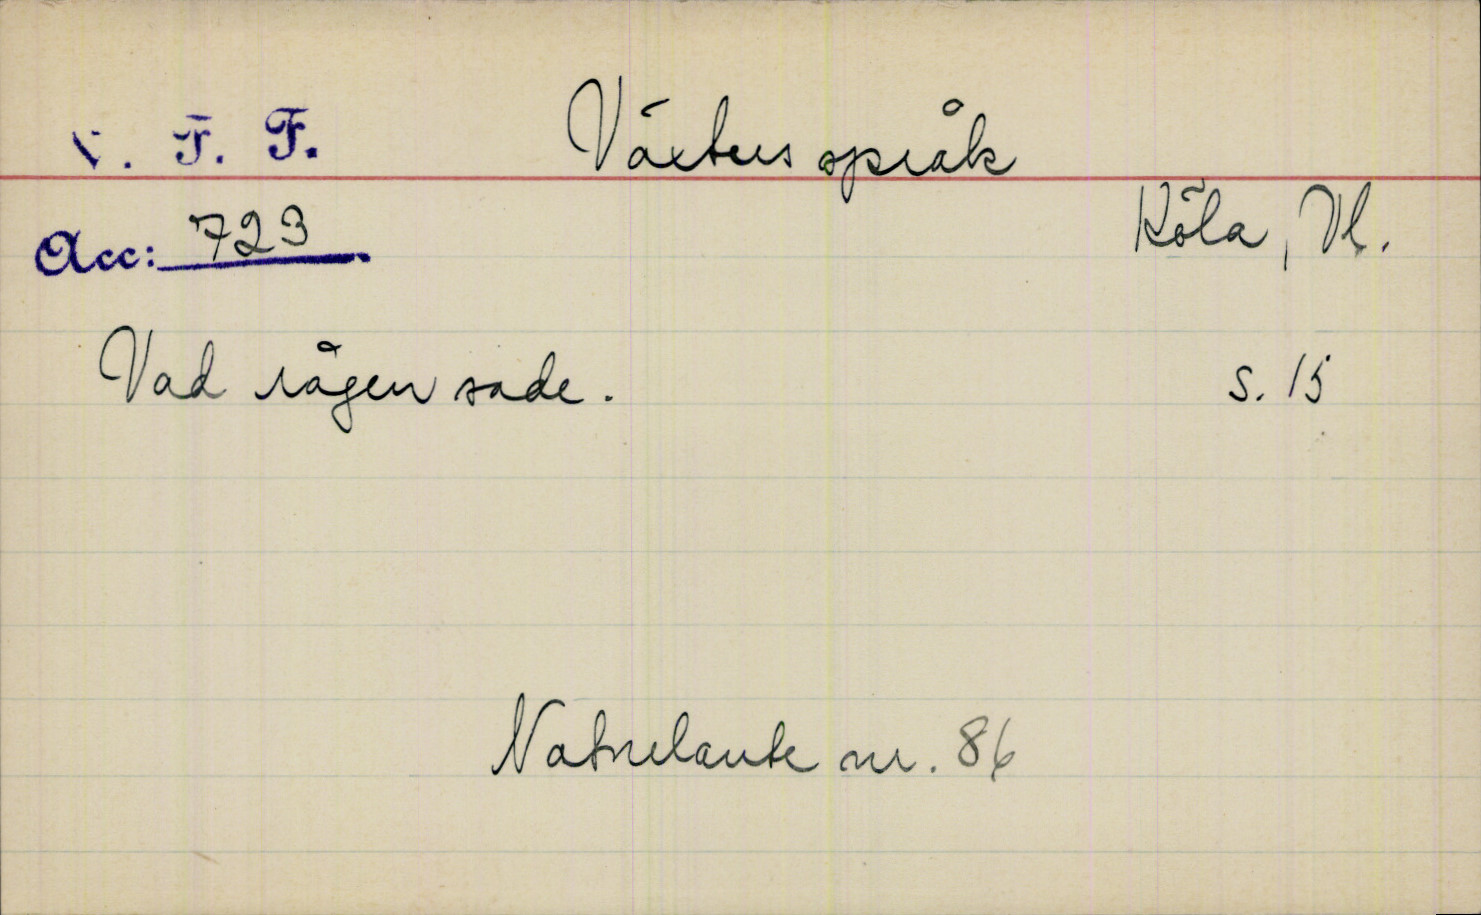 V. F. F.
Växters språk
Acc: 723
Köla, Vl.
Vad rågen sade.
s. 15
Naturlaute nr. 86